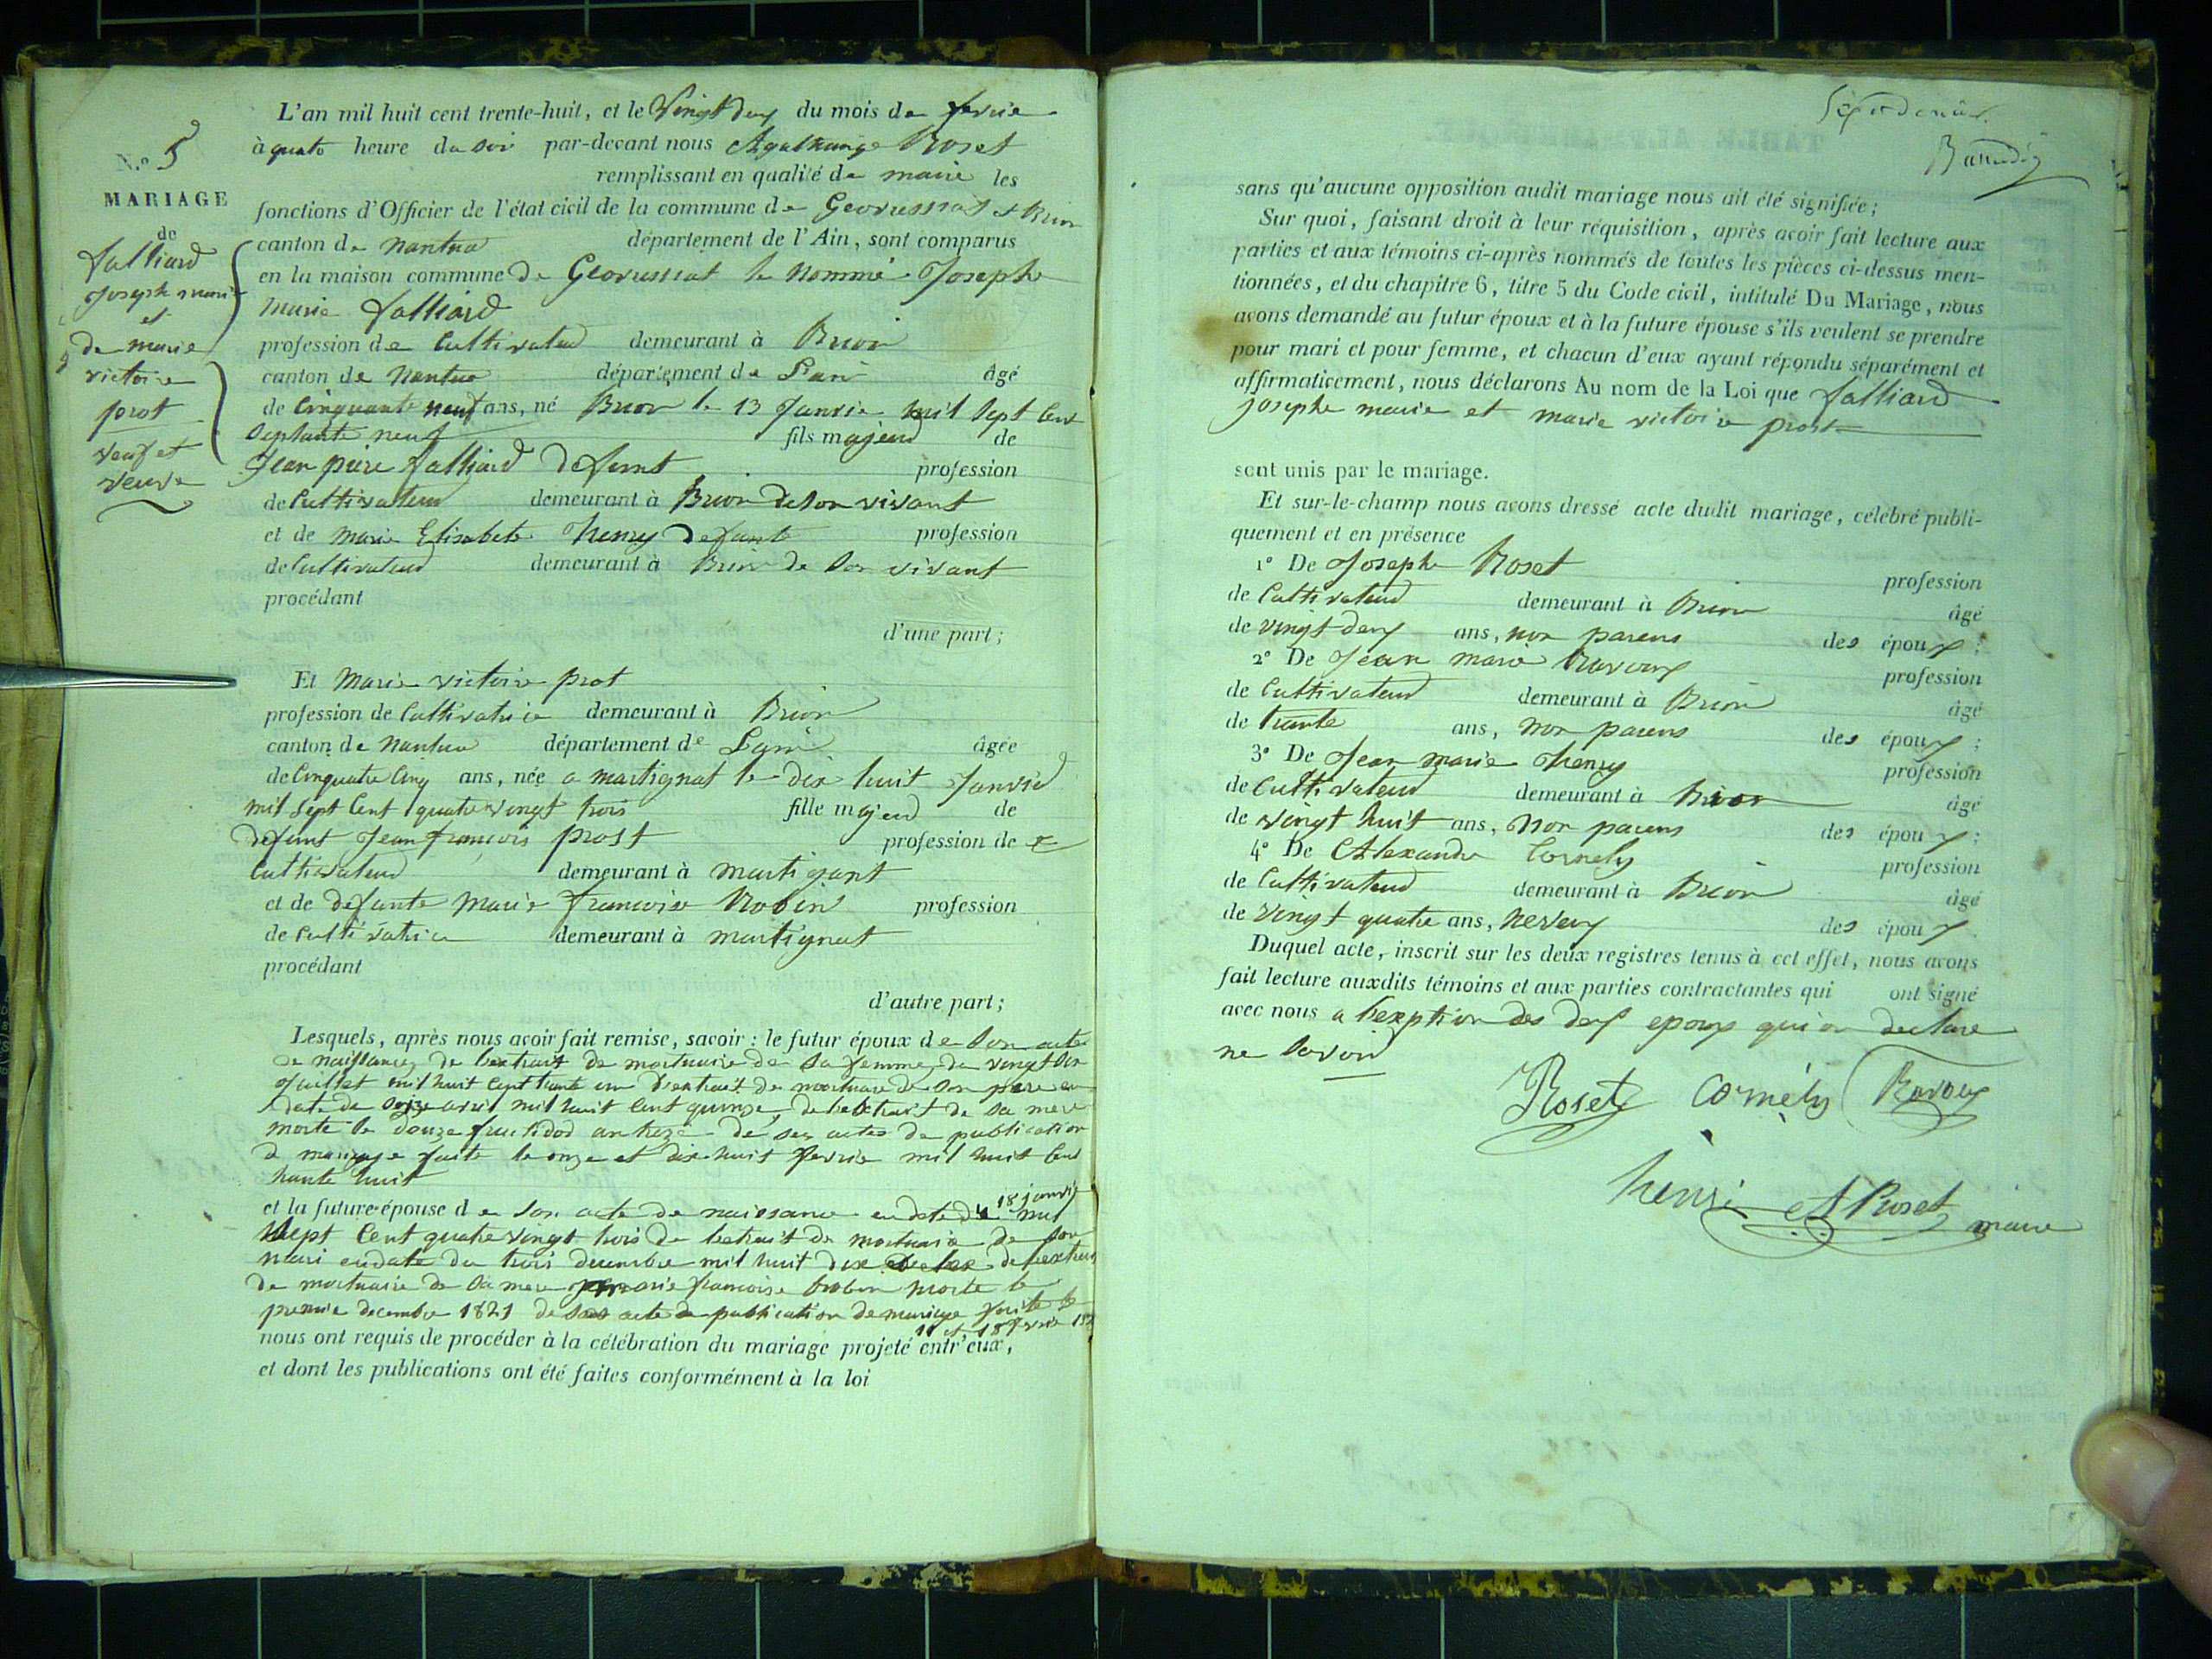 N.o 5
MARIAGE
de
falliard
Joseph marie
et
de marie
victoire
prot
veuf et
veuve
L'an mil huit cent trente-huit, et le Vingt deux du mois de fevrie
à quatr heure du soir par-devant nous Agathange Roset
remplissant en qualité de maire les
fonctions d'Officier de l'état civil de la commune de Geovressiat et Brion
canton de nantua département de l'Ain, sont comparus
en la maison commune de Geovressiat le nommé Josephe
marie falliard
profession de Cultivateur demeurant à Brion
canton de Nantua département de L'ain âgé
de Cinquante neuf ans, né Brion le 13 Janvie mil Sept Cent
Septante neuf fils majeur de
Jean piere falliard defunt profession
de Cultivateur demeurant à Brion de son vivant
et de marie Elisabete henry defunte profession
de Cultivateur demeurant à Brion de Son vivant
procédant
d'une part ;
Et Marie victoire prot
profession de Cultivatrice demeurant à Brion
canton de nantua département de L'ain âgée
de Cinquate Cinq ans, née a martignat le dix huit Janvié
mil Sept Cent quatre vingt trois fille majeur de
defunt Jean françois prost profession de
Cultivateur demeurant à martignant
et de defunte Marie francoise Robin profession
de Cultivatrice demeurant à martignat
procédant
d'autre part ;
Lesquels, après nous avoir fait remise, savoir : le futur époux de Son acte
de naissance, de lextrait de mortuaire de Sa femme du vingt Six
Juillet mil huit Cent trante un d'extrait de mortuaire de Son pere en
date de Seize avril mil huit Cent quinze, de lextrait de Sa mere
morte le douze fructidod an treze de ses actes de publication
de mariage faite le onze et dix huit fevrie mil huit Cent
trante huit
et la future épouse de Son acte de naissance en date du 18 janvie mil
Sept Cent quatre vingt trois de lextrait de mortuaire de Son
mari en date du trois decembre mil huit dix de lextrait
de mortuaire de Sa mere marie francoise Robin morte le
premie decembre 1821 de Son acte de publication de mariage faite le
11 et 18 fevrie 183
nous ont requis de procéder à la célébration du mariage projeté entr'eux,
et dont les publications ont été faites conformément à la loi
sans qu'aucune opposition audit mariage nous ait été signifiée ;
Sur quoi, faisant droit à leur réquisition, après avoir fait lecture aux
parties et aux témoins ci-après nommés de toutes les pièces ci-dessus men-
tionnées, et du chapitre 6, titre 5 du Code civil, intitulé Du Mariage, nous
avons demandé au futur époux et à la future épouse s'ils veulent se prendre
pour mari et pour femme, et chacun d'eux ayant répondu séparément et
affirmativement, nous déclarons Au nom de la Loi que falliard
josephe marie et marie victoire prost
sont unis par le mariage.
Et sur-le-champ nous avons dressé acte dudit mariage, célébré publi-
quement et en présence
1° De Josephe Roset profession
de Cultivateur demeurant à Brion âgé
de vingt deux ans, non parens des époux ;
2° De Jean marie Ravoux profession
de Cultivateur demeurant à Brion âgé
de trante ans, non parens des époux ;
3° De Jean marie henry profession
de Cultivateur demeurant à Brion âgé
de vingt huit ans, non parens des époux ;
4° De Alexandre Cornely profession
de Cultivateur demeurant à Brion âgé
de vingt quatre ans, neveux des époux
Duquel acte, inscrit sur les deux registres tenus à cet effet, nous avons
fait lecture auxdits témoins et aux parties contractantes qui ont signé
avec nous a l'exption des deux epoux qui on declare
ne Savoir
Roset Cornély Ravoux
henri A Roset maire